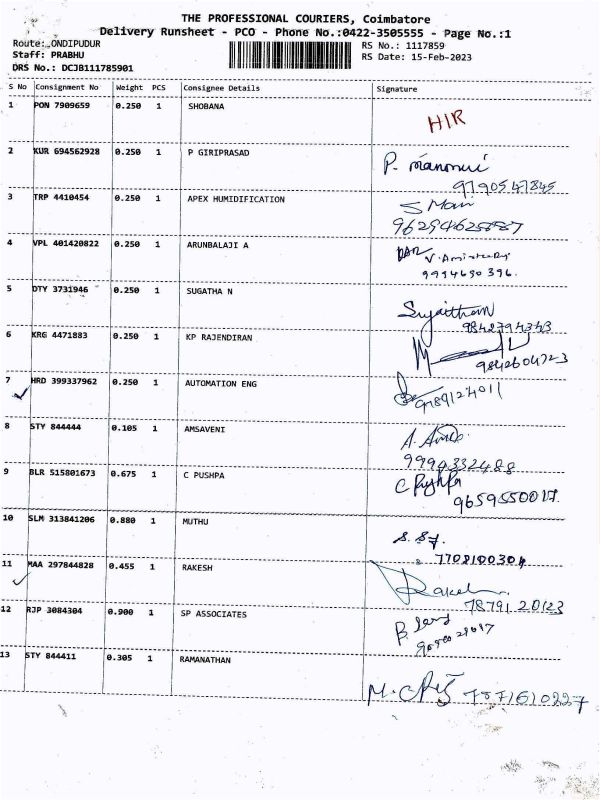 THE PROFESSIONAL COURIERS, Coimbatore
Delivery Runsheet - PCO - Phone No.:0422-3505555 - Page No.:1
Route: ONDIPUDUR RS No.: 1117859
Staff: PRABHU RS Date: 15-Feb-2023
DRS No.: DCJB111785901
S No Consignment No Weight PCS Consignee Details Signature
1 PON 7909659 0.250 1 SHOBANA HIR
2 KUR 694562928 0.250 1 P GIRIPRASAD P.
9790547845
3 TRP 4410454 0.250 1 APEX HUMIDIFICATION S Mani
4 VPL 401420822 0.250 1 ARUNBALAJI A
9994690396.
5 DTY 3731946 0.250 1 SUGATHA N
9842794343
6 KRG 4471883 0.250 1 KP RAJENDIRAN
9842604723
7 HRD 399337962 0.250 1 AUTOMATION ENG
9789124011
8 STY 844444 0.105 1 AMSAVENI A.
9994332488
9 BLR 515801673 0.675 1 C PUSHPA C Pushpa
9659550017.
10 SLM 313841206 0.880 1 MUTHU
7708100304
11 MAA 297844828 0.455 1 RAKESH Rakesh
7879120123
12 RJP 3084304 0.900 1 SP ASSOCIATES
13 STY 844411 0.305 1 RAMANATHAN
7871610227